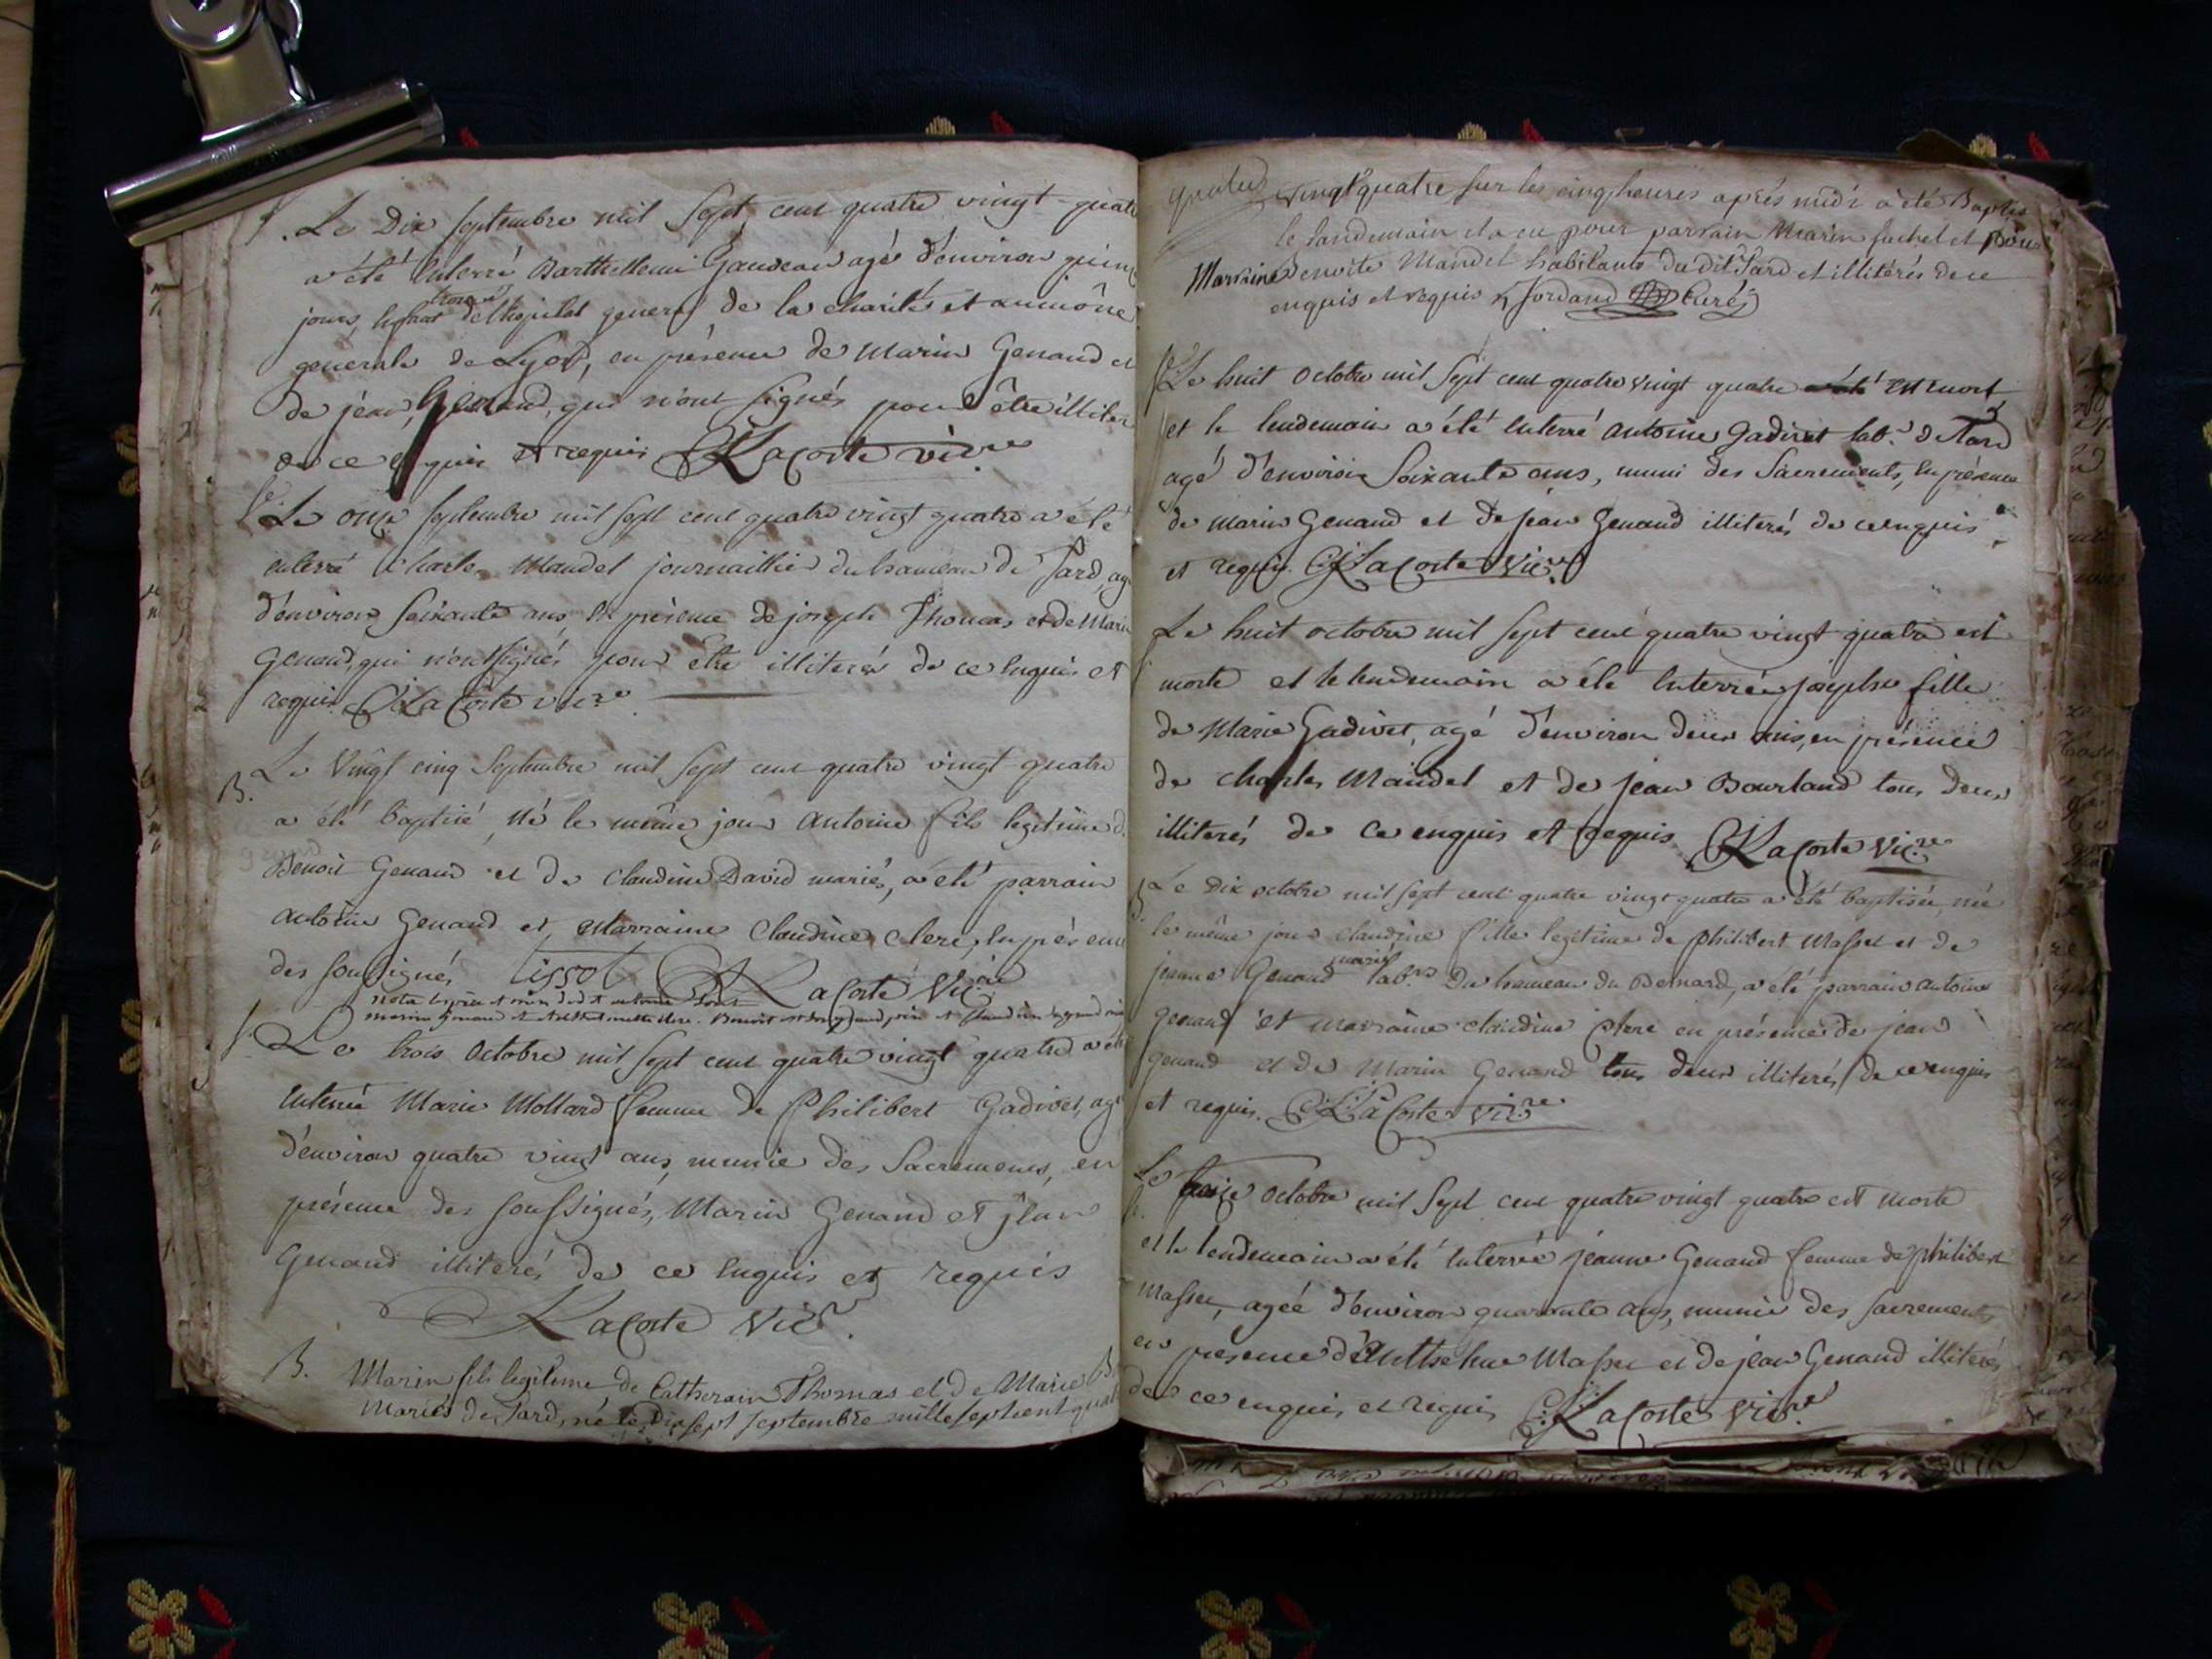 Le Dix septembre mil sept cent quatre vingt quatre
a été enterré Barthellemi Gaudeau agé d'environ quinze
jours, de l'hopital general de la charité et aumône
generale de Lyon, en présence de Marin Genaud et
de jean Genaud, qui n'ont signés pour être illiter
de ce enquis et requis Lacoste vic.re
S. Le onze septembre mil sept cent quatre vingt quatre a été
enterré Charles Mandel journaillier du hameau de Tard, agé
d'environ soixante ans en présence de joseph Thomas et de Marin
Genaud, qui n'ont signés pour être illiterés de ce enquis et
requis Lacoste vic.re
B. Le Vingt cinq Septembre mil sept cent quatre vingt quatre
a été baptisé, né le même jour Antoine fils legitime d
Benoit Genaud et de Claudine David mariés, a été parrain
antoine Genaud et Marraine Claudine Clerc, en présence
des soussignés tissot Lacoste Vic.re
S. Le trois Octobre mil sept cent quatre vingt quatre a été
enterrée Marie Mollard femme de Philibert Gadivet, agé
d'environ quatre vingt ans, munie des Sacremens, en
présence des soussignés, Marin Genaud et jean
Genaud illiterés de ce enquis et requis
Lacoste Vic.re
B. Marin fils legitime de Catherain Thomas et de Marie B
Mariés de Tard, né le Dix sept septembre mille sept cent quat
quatre vingt quatre sur les cinq heures après midi a été Baptis
le landemain et a eu pour parrain Marin fuchet et pour
Marraine Benoite Mandel habitants du dit Tard et illitérés de ce
enquis et requis Jordand Curé
S. Le huit Octobre mil sept cent quatre vingt quatre est mort
et le lendemain a été enterré antoine Gadivet lab.r de Tard
agé d'environ soixante ans, muni des Sacrements, en présence
de marin Genaud et de jean Genaud illiterés de ce enquis
et requis. Lacoste Vic.re
Le huit octobre mil sept cent quatre vingt quatre est
morte et le lendemain a été enterrée josephe fille
de Marie Gadivet, agé d'environ deux ans, en présence
de charles Mandel et de jean Bourland tous deux
illiterés de ce enquis et requis Lacoste Vic.re
B. Le Dix octobre mil sept cent quatre vingt quatre a été baptisée, née
le même jour claudine fille legitime de philibert Masset et de
jeanne Genaud mariés lab.rs du hameau du Bernard, a été parrain antoine
genaud et marraine claudine Clerc en présence de jean
genaud et de Marin Genaud tous deux illiterés de ce enquis
et requis. Lacoste Vic.re
S. Le treize Octobre mil sept cent quatre vingt quatre est morte
et le lendemain a été enterrée jeanne Genaud femme de philibert
Masset, agée d'environ quarante ans, munie des sacrements
en presence d'Anthelme Masset et de jean Genaud illiterés
de ce enquis et requis Lacoste Vic.re